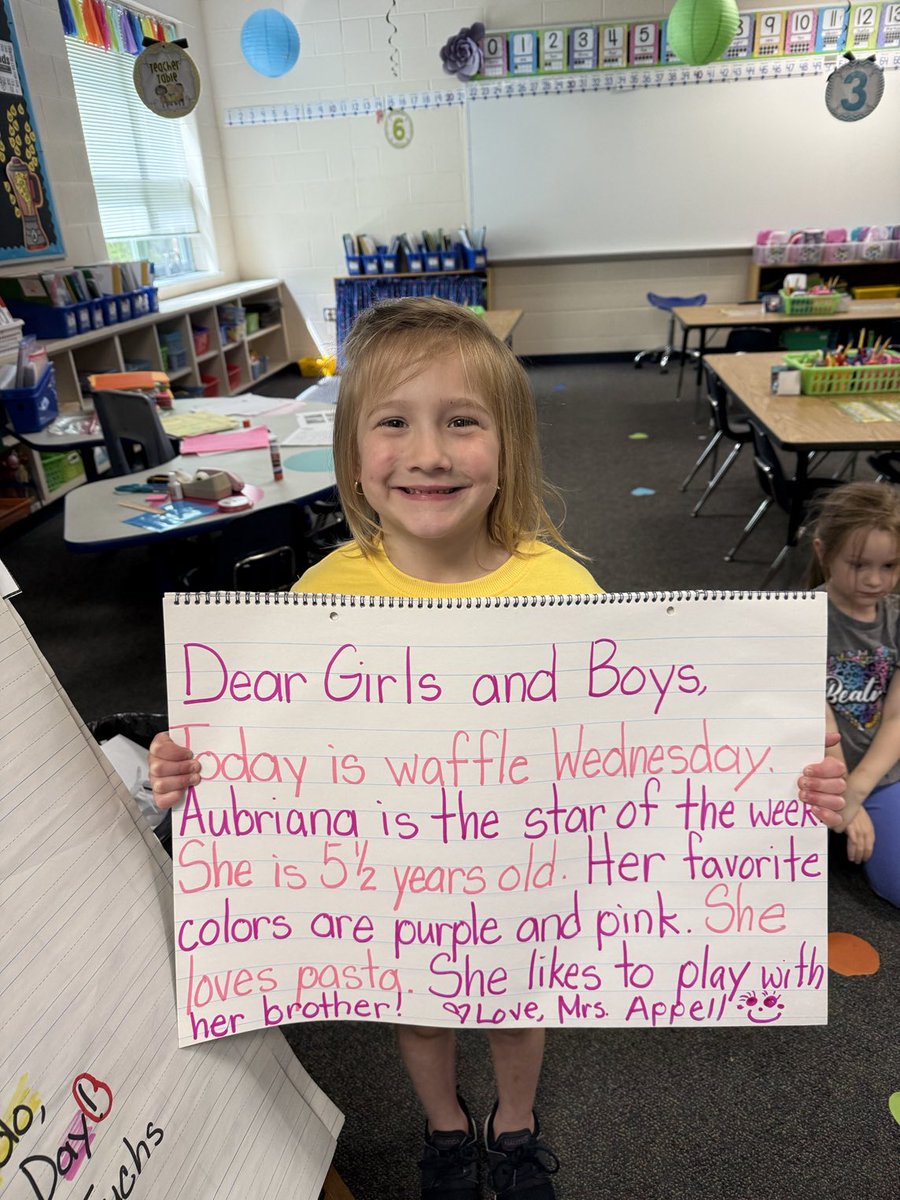 TEACHER TABLE
0 1 2 3 4 5 9 10 11 12 13
6
3
Dear Girls and Boys,
Today is waffle Wednesday.
Aubriana is the star of the week.
She is 5½ years old. Her favorite
colors are purple and pink. She
loves pasta. She likes to play with
her brother! ♡Love, Mrs. Appell
Beatles
Day B